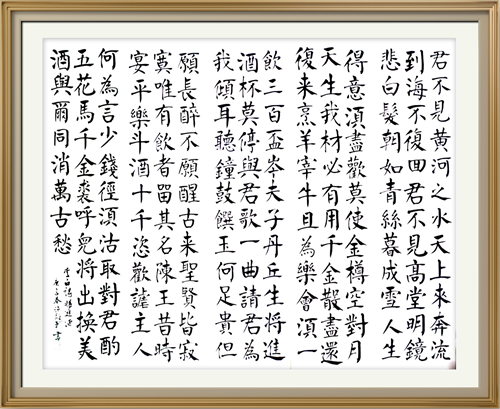 君不見黃河之水天上來奔流
到海不復回君不見高堂明鏡
悲白髮朝如青絲暮成雪人生
得意須盡歡莫使金樽空對月
天生我材必有用千金散盡還
復来烹羊宰牛且為樂會須一
飲三百盃岑夫子丹丘生將進
酒杯莫停與君歌一曲請君為
我傾耳聽鐘鼓饌玉何足貴但
願長醉不願醒古来聖賢皆寂
寞唯有飲者留其名陳王昔時
宴平樂斗酒十千恣歡謔主人
何為言少錢徑須沽取對君酌
五花馬千金裘呼兒將出換美
酒與爾同消萬古愁
李白詩將進酒